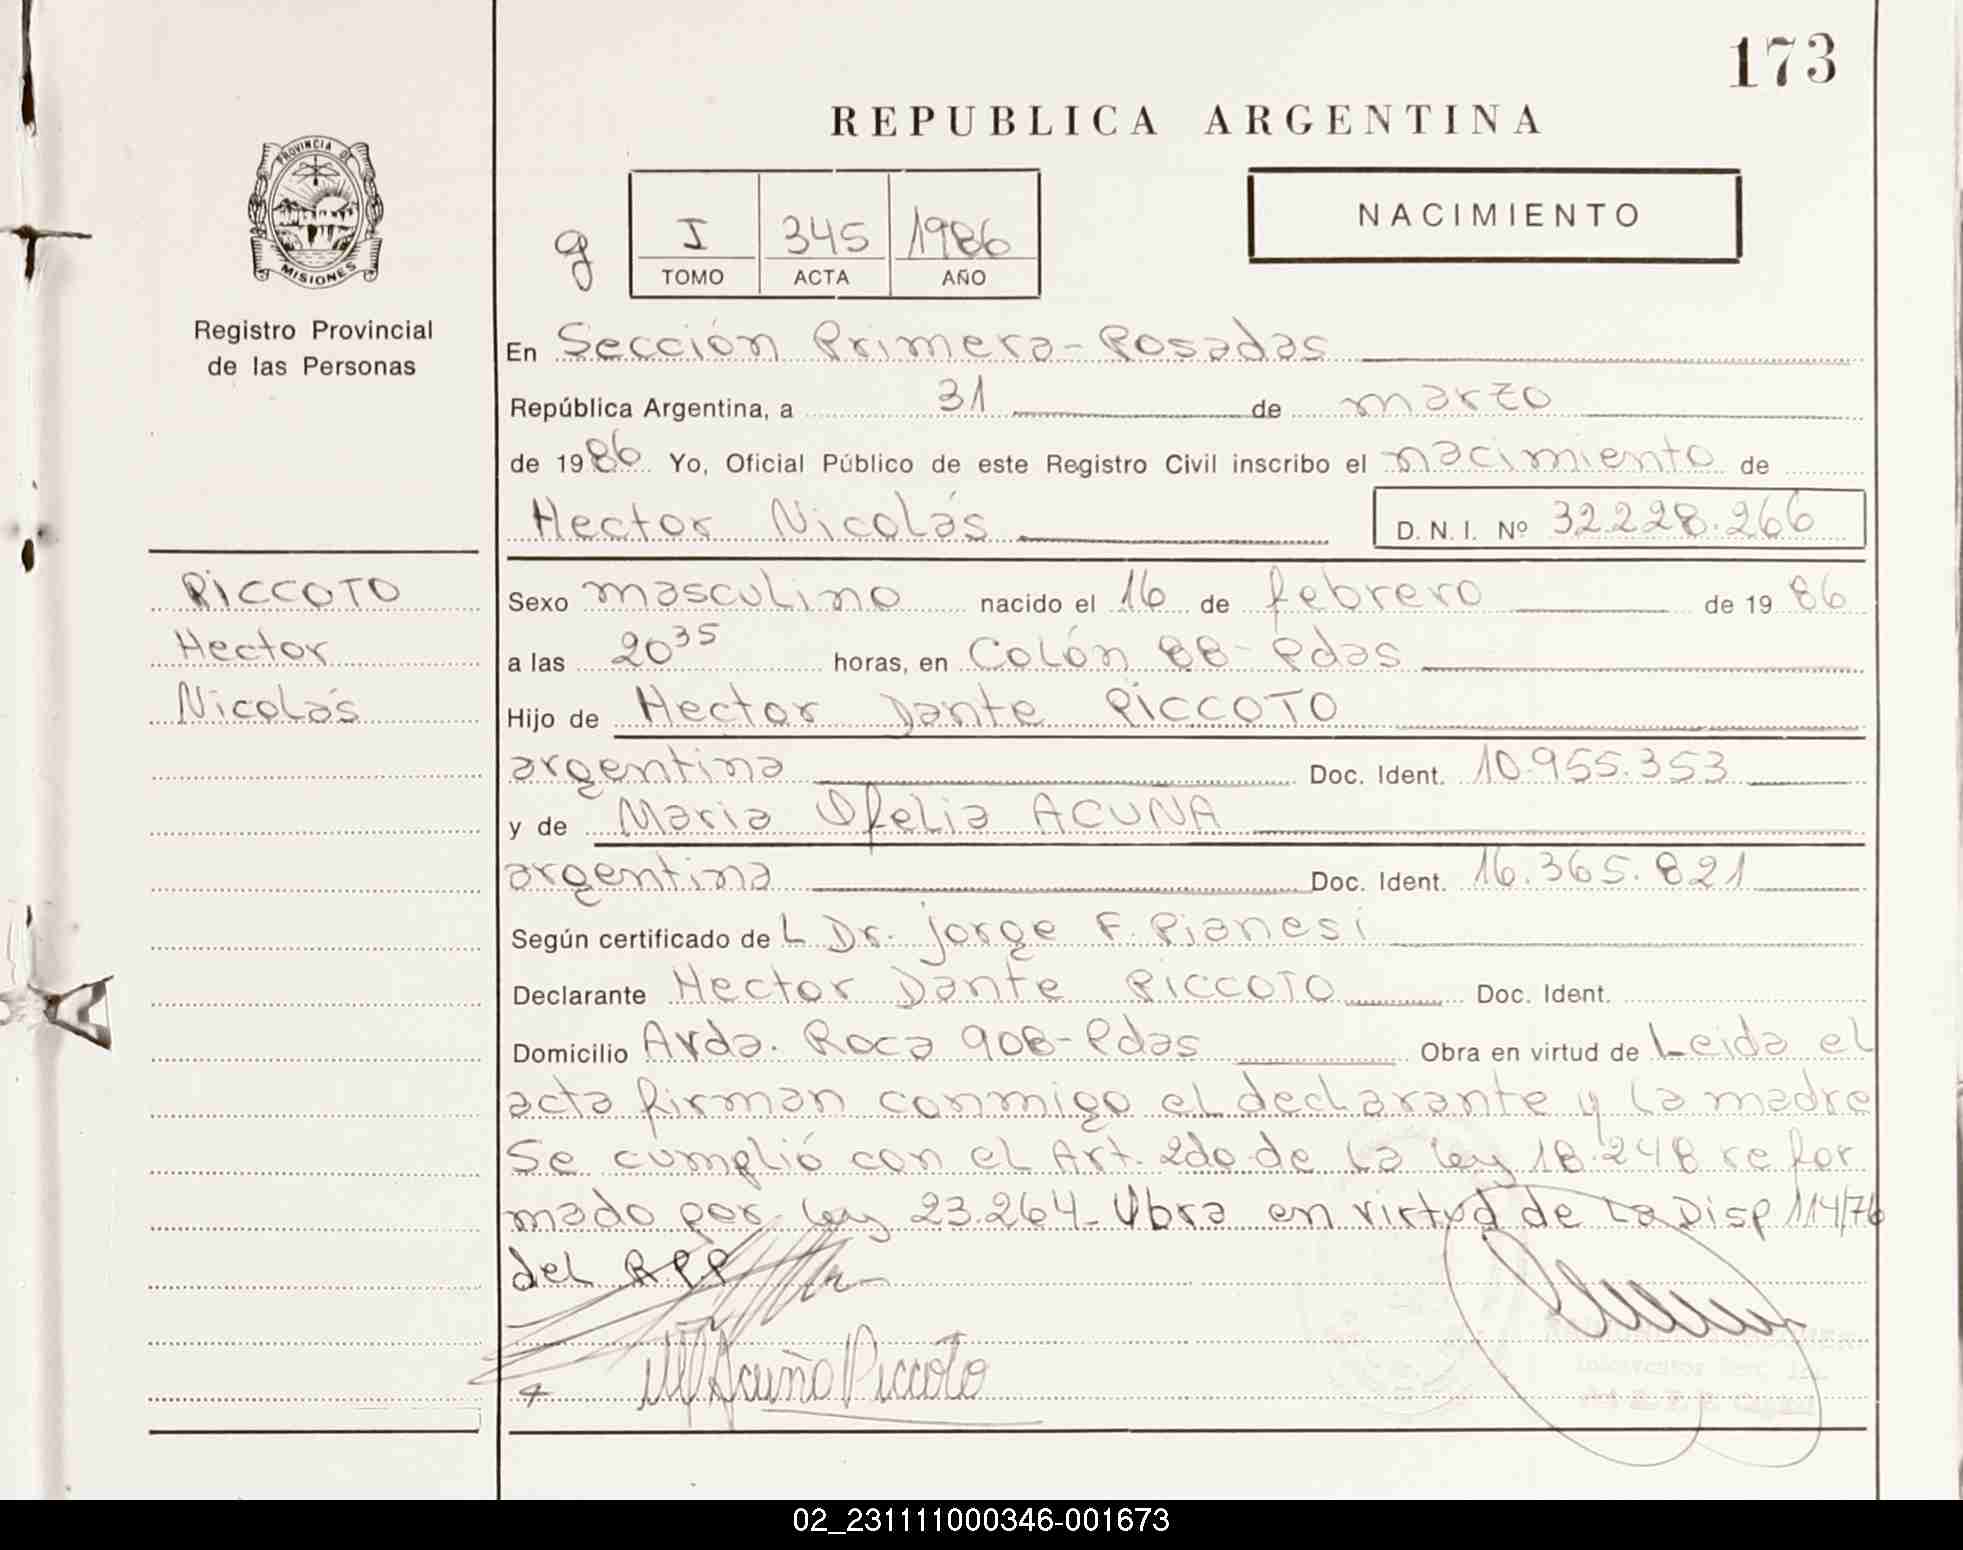 173
REPUBLICA ARGENTINA
PROVINCIA DE
MISIONES
Registro Provincial
de las Personas
g
I 345 1986
TOMO ACTA AÑO
NACIMIENTO
En Sección Primera - Posadas
República Argentina, a 31 de marzo
de 1986 Yo, Oficial Público de este Registro Civil inscribo el nacimiento de
Hector Nicolás D. N. I. Nº 32.228.266
PICCOTO
Hector
Nicolás
Sexo masculino nacido el 16 de febrero de 1986
a las 20 35 horas, en Colón 88 - Pdas
Hijo de Hector Dante PICCOTO
argentina Doc. Ident. 10.955.353
y de Maria Ofelia ACUÑA
argentina Doc. Ident. 16.365.821
Según certificado del Dr. Jorge F. Pianesi
Declarante Hector Dante PICCOTO Doc. Ident.
Domicilio Avda. Roca 908 - Pdas Obra en virtud de Leida el
acta firman conmigo el declarante y la madre
Se cumplió con el Art. 2do de la ley 18.248 refor
mado por ley 23.264 - Obra en virtud de la Disp 114/76
del RPP
M Acuña Piccoto
02_231111000346-001673